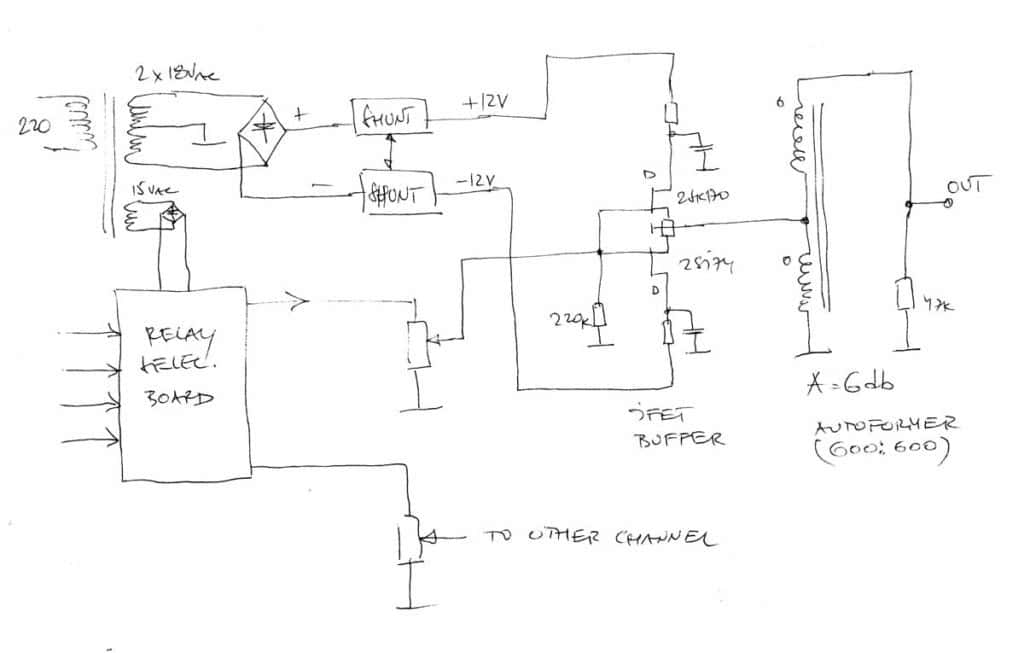 2 x 18VAC
220
+
SHUNT
+12V
15VAC
−
SHUNT
−12V
D
2SK170
OUT
2SJ74
D
220K
47K
RELAY
SELEC.
BOARD
A = 6db
JFET
BUFFER
AUTOFORMER
(600:600)
TO OTHER CHANNEL